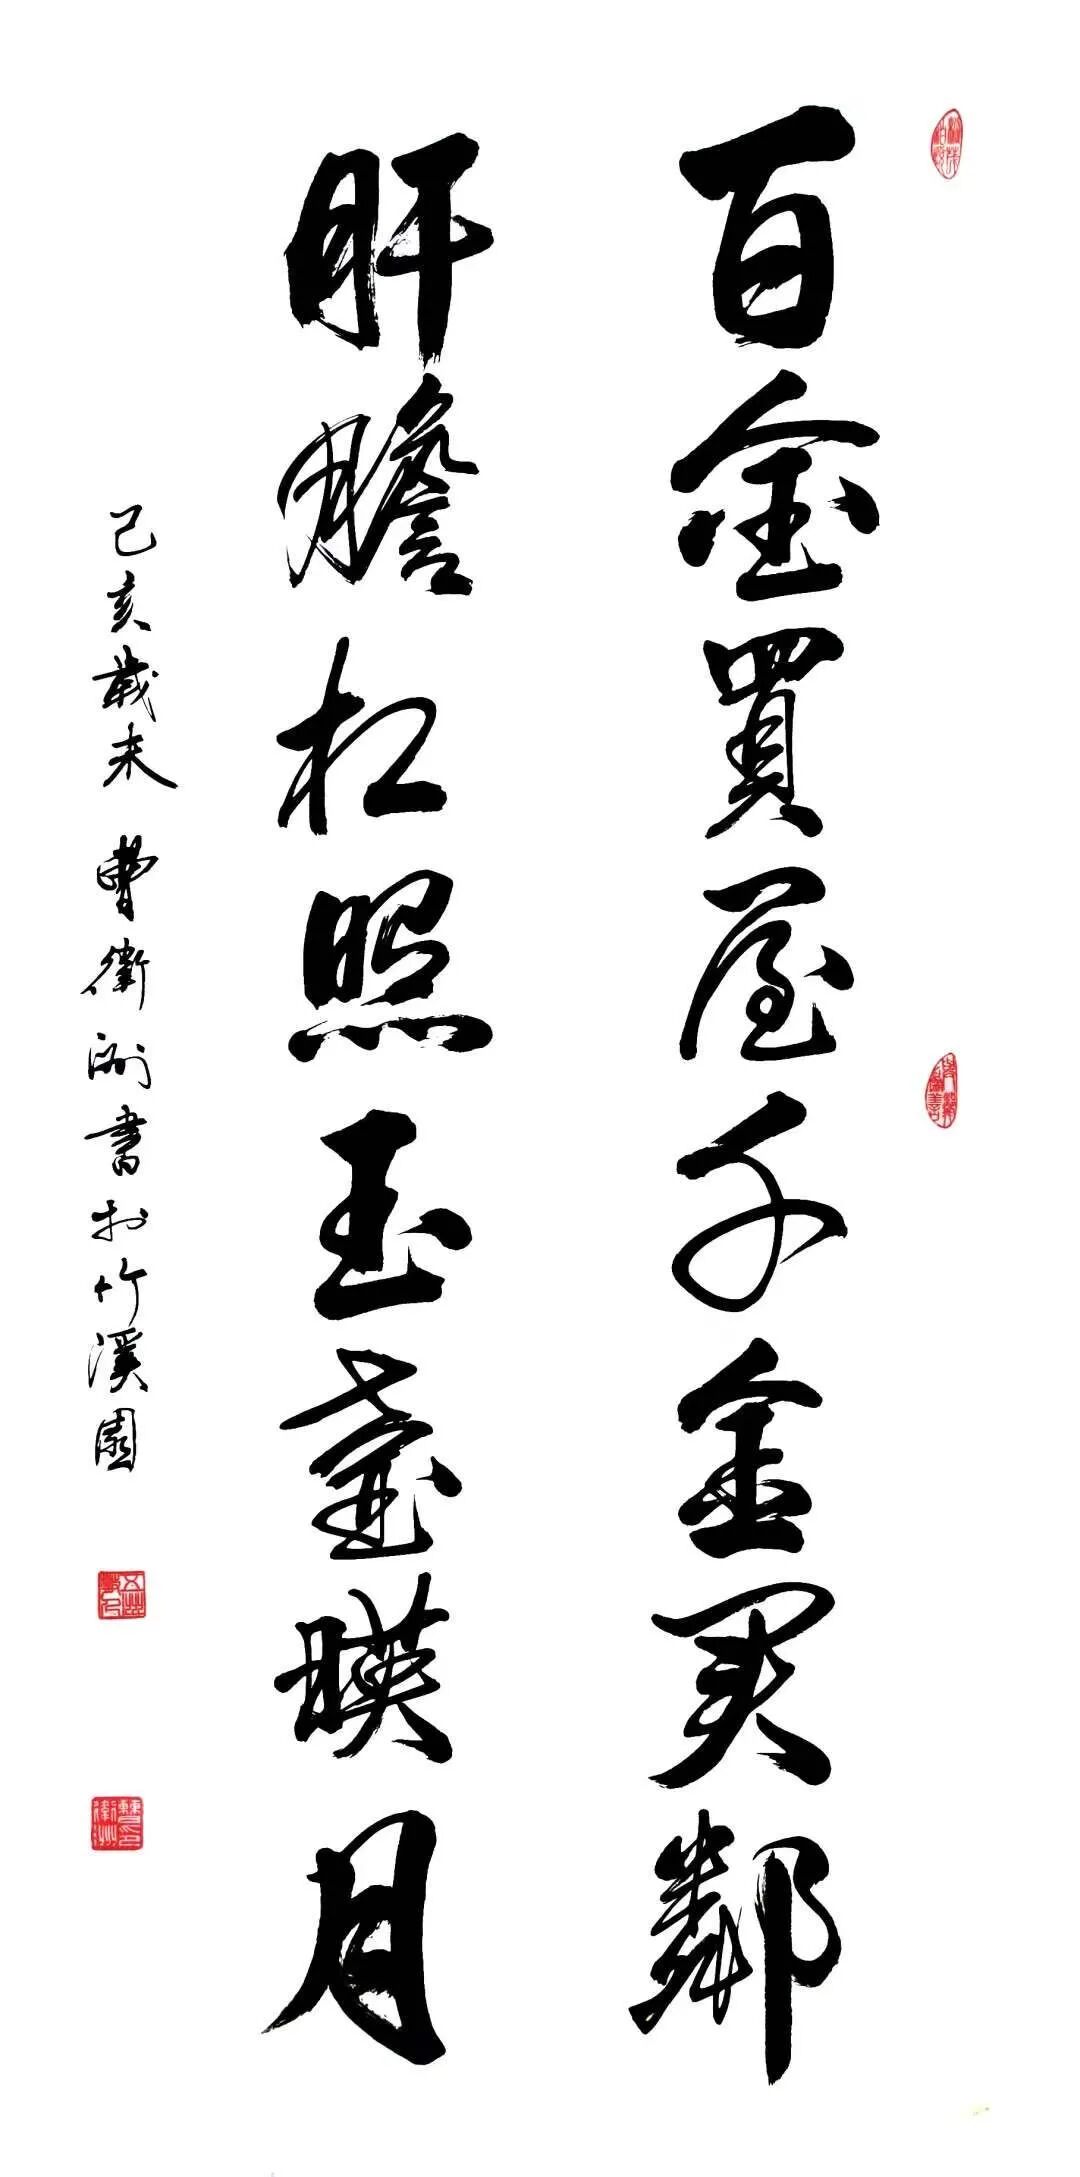 百金買屋千金买鄰
肝膽相照玉壺暎月
己亥歲末 曹衛洲書於竹溪園